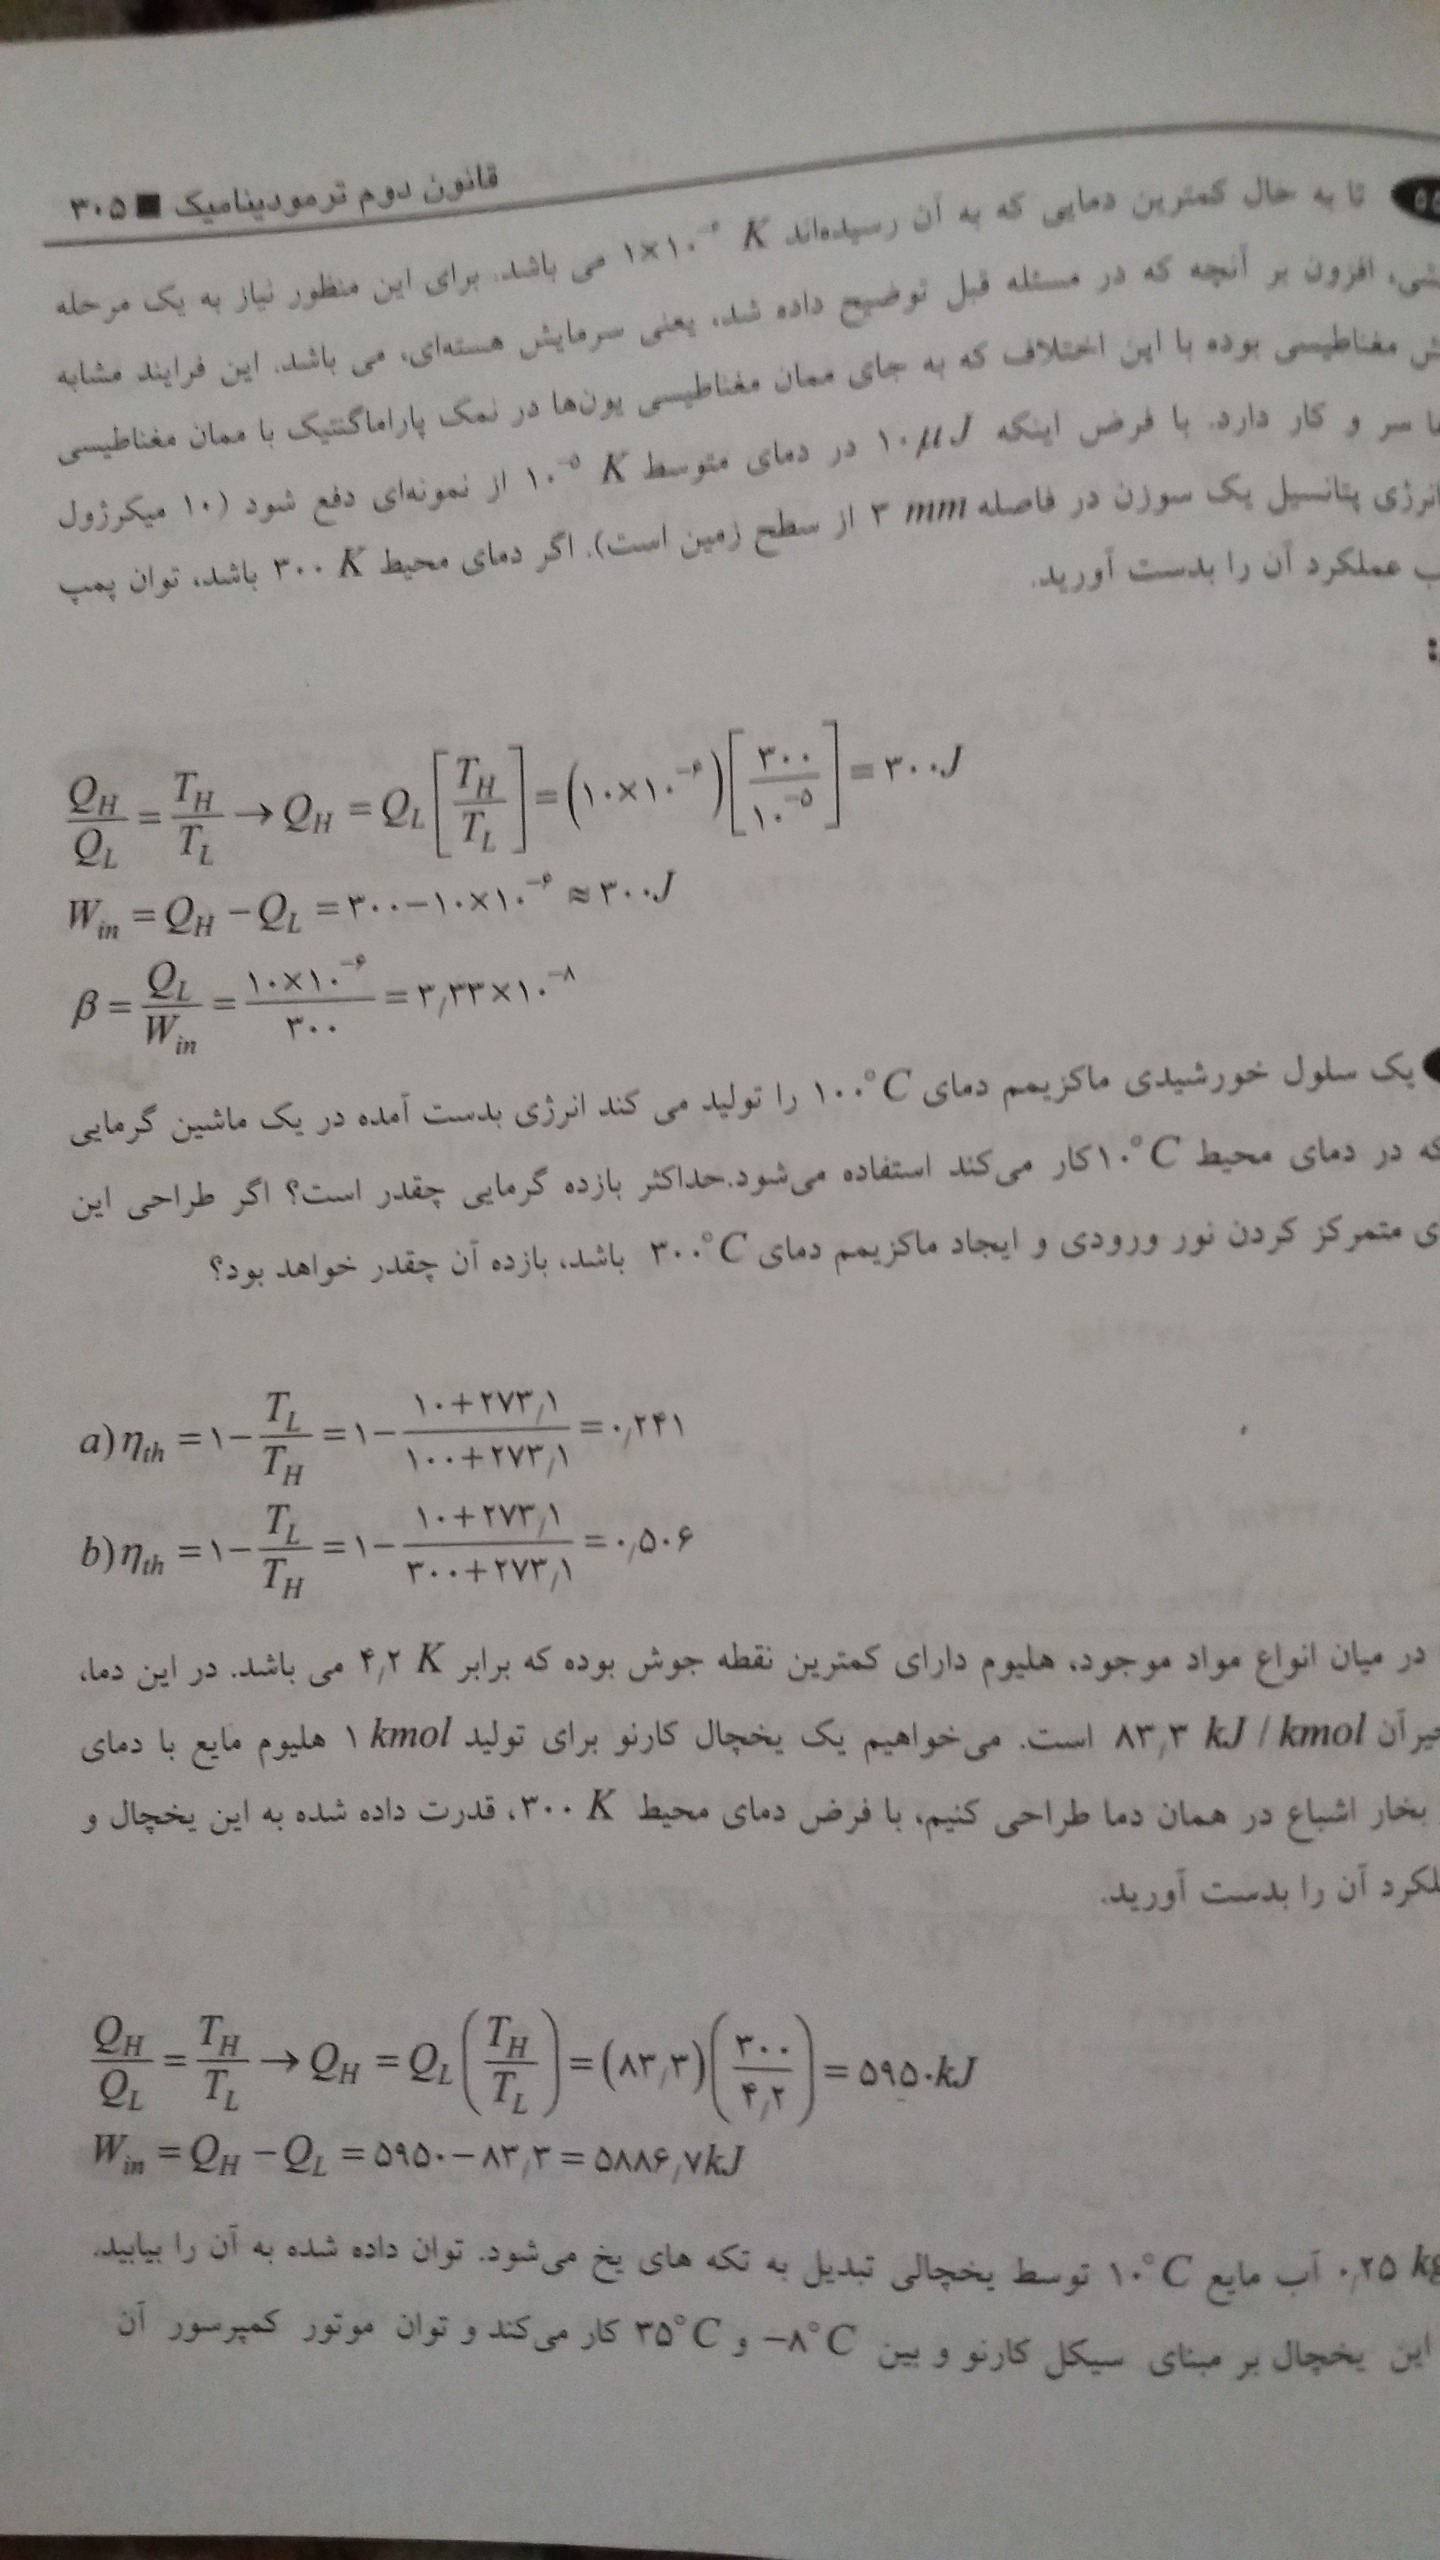 قانون دوم ترمودینامیک ■ ۳۰۵
تا به حال کمترین دمایی که به آن رسیده‌اند ۱×۱۰⁻⁶ K می باشد. برای این منظور نیاز به یک مرحله
افزون بر آنچه که در مسئله قبل توضیح داده شد، یعنی سرمایش هسته‌ای، می باشد. این فرایند مشابه
مغناطیسی بوده با این اختلاف که به جای ممان مغناطیسی یون‌ها در نمک پاراماگنتیک با ممان مغناطیسی
سر و کار دارد. با فرض اینکه ۱۰μJ در دمای متوسط ۱۰⁻⁵ K از نمونه‌ای دفع شود (۱۰ میکرژول
انرژی پتانسیل یک سوزن در فاصله ۳ mm از سطح زمین است). اگر دمای محیط ۳۰۰ K باشد، توان پمپ
عملکرد آن را بدست آورید.
:
Q_H/Q_L = T_H/T_L → Q_H = Q_L [T_H/T_L] = (۱۰×۱۰⁻⁶)[۳۰۰/۱۰⁻⁵] = ۳۰۰J
W_in = Q_H − Q_L = ۳۰۰−۱۰×۱۰⁻⁶ ≈ ۳۰۰J
β = Q_L/W_in = ۱۰×۱۰⁻⁶/۳۰۰ = ۳٫۳۳×۱۰⁻⁸
یک سلول خورشیدی ماکزیمم دمای ۱۰۰°C را تولید می کند انرژی بدست آمده در یک ماشین گرمایی
که در دمای محیط ۱۰°C کار می‌کند استفاده می‌شود.حداکثر بازده گرمایی چقدر است؟ اگر طراحی این
متمرکز کردن نور ورودی و ایجاد ماکزیمم دمای ۳۰۰°C باشد، بازده آن چقدر خواهد بود؟
a) η_th = ۱− T_L/T_H = ۱− (۱۰+۲۷۳٫۱)/(۱۰۰+۲۷۳٫۱) = ۰٫۲۴۱
b) η_th = ۱− T_L/T_H = ۱− (۱۰+۲۷۳٫۱)/(۳۰۰+۲۷۳٫۱) = ۰٫۵۰۶
در میان انواع مواد موجود، هلیوم دارای کمترین نقطه جوش بوده که برابر ۴٫۲ K می باشد. در این دما،
۸۳٫۳ kJ / kmol است. می‌خواهیم یک یخچال کارنو برای تولید ۱ kmol هلیوم مایع با دمای
بخار اشباع در همان دما طراحی کنیم، با فرض دمای محیط ۳۰۰ K، قدرت داده شده به این یخچال و
آن را بدست آورید.
Q_H/Q_L = T_H/T_L → Q_H = Q_L (T_H/T_L) = (۸۳٫۳)(۳۰۰/۴٫۲) = ۵۹۵۰kJ
W_in = Q_H − Q_L = ۵۹۵۰−۸۳٫۳ = ۵۸۸۶٫۷kJ
۰٫۲۵ kg آب مایع ۱۰°C توسط یخچالی تبدیل به تکه های یخ می‌شود. توان داده شده به آن را بیابید.
این یخچال بر مبنای سیکل کارنو و بین −۸°C و ۳۵°C کار می‌کند و توان موتور کمپرسور آن